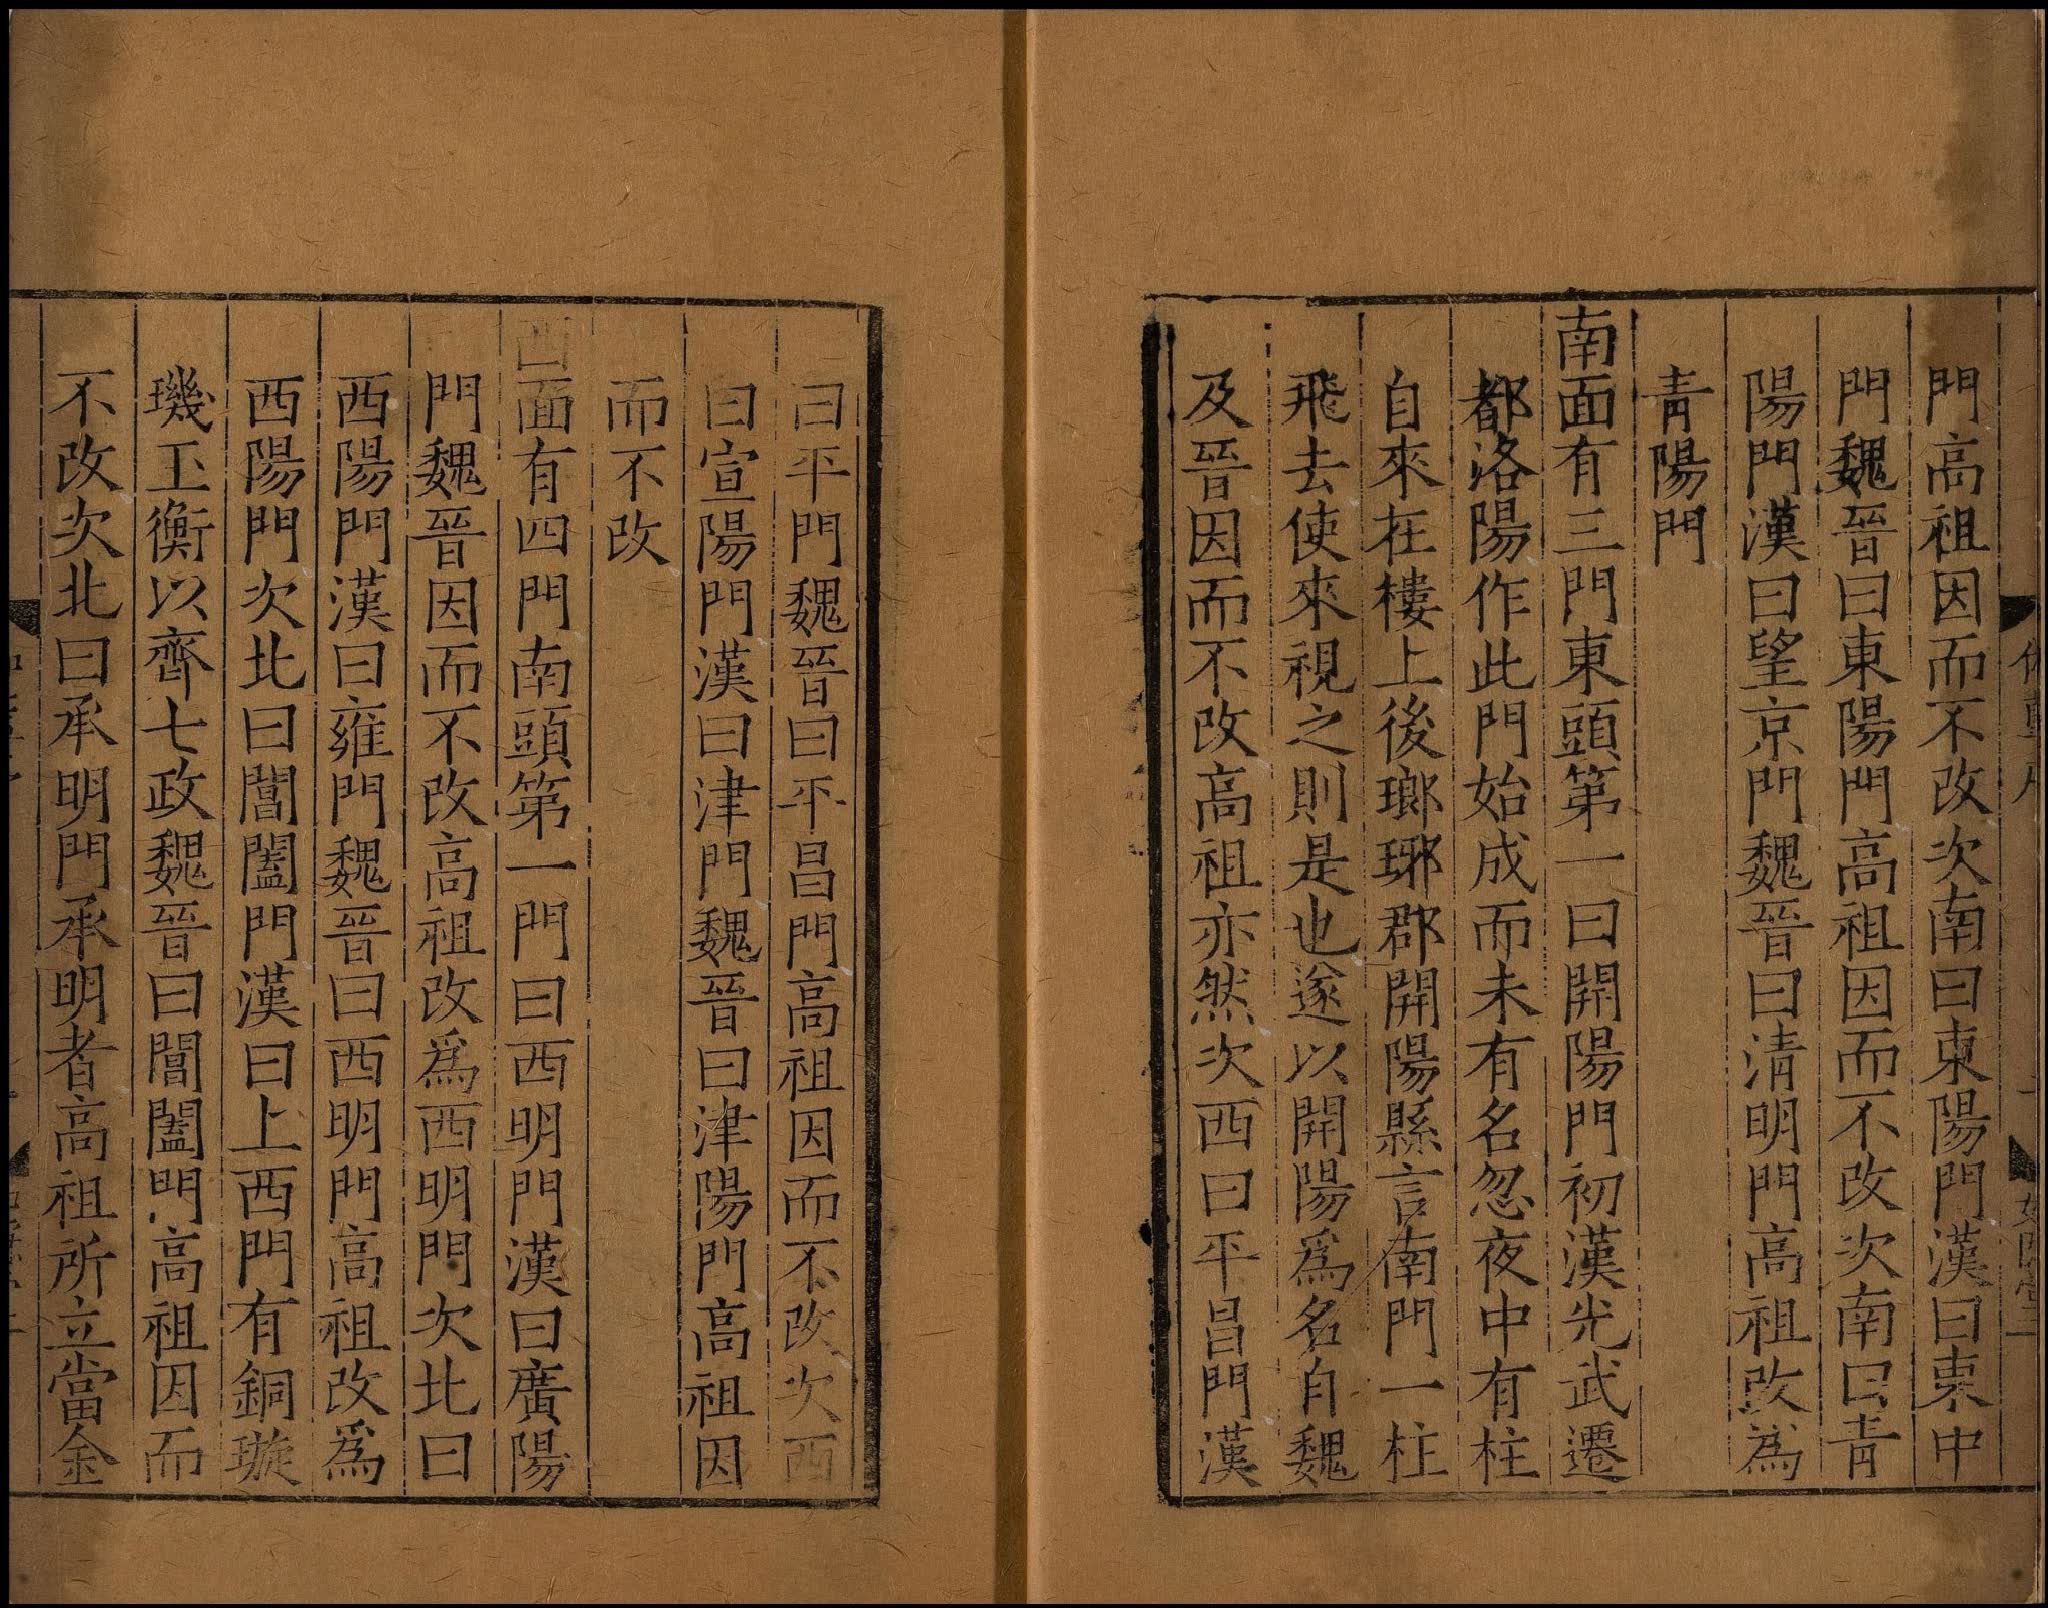 門高祖因而不改次南曰東陽門漢曰東中
門魏晉曰東陽門高祖因而不改次南曰青
陽門漢曰望京門魏晉曰清明門高祖改為
青陽門
南面有三門東頭第一曰開陽門初漢光武遷
都洛陽作此門始成而未有名忽夜中有柱
自來在樓上後瑯琊郡開陽縣言南門一柱
飛去使來視之則是也遂以開陽為名自魏
及晉因而不改高祖亦然次西曰平昌門漢
曰平門魏晉曰平昌門高祖因而不改次西
曰宣陽門漢曰津門魏晉曰津陽門高祖因
而不改
西面有四門南頭第一門曰西明門漢曰廣陽
門魏晉因而不改高祖改為西明門次北曰
西陽門漢曰雍門魏晉曰西明門高祖改為
西陽門次北曰閶闔門漢曰上西門有銅璇
璣玉衡以齊七政魏晉曰閶闔門高祖因而
不改次北曰承明門承明者高祖所立當金